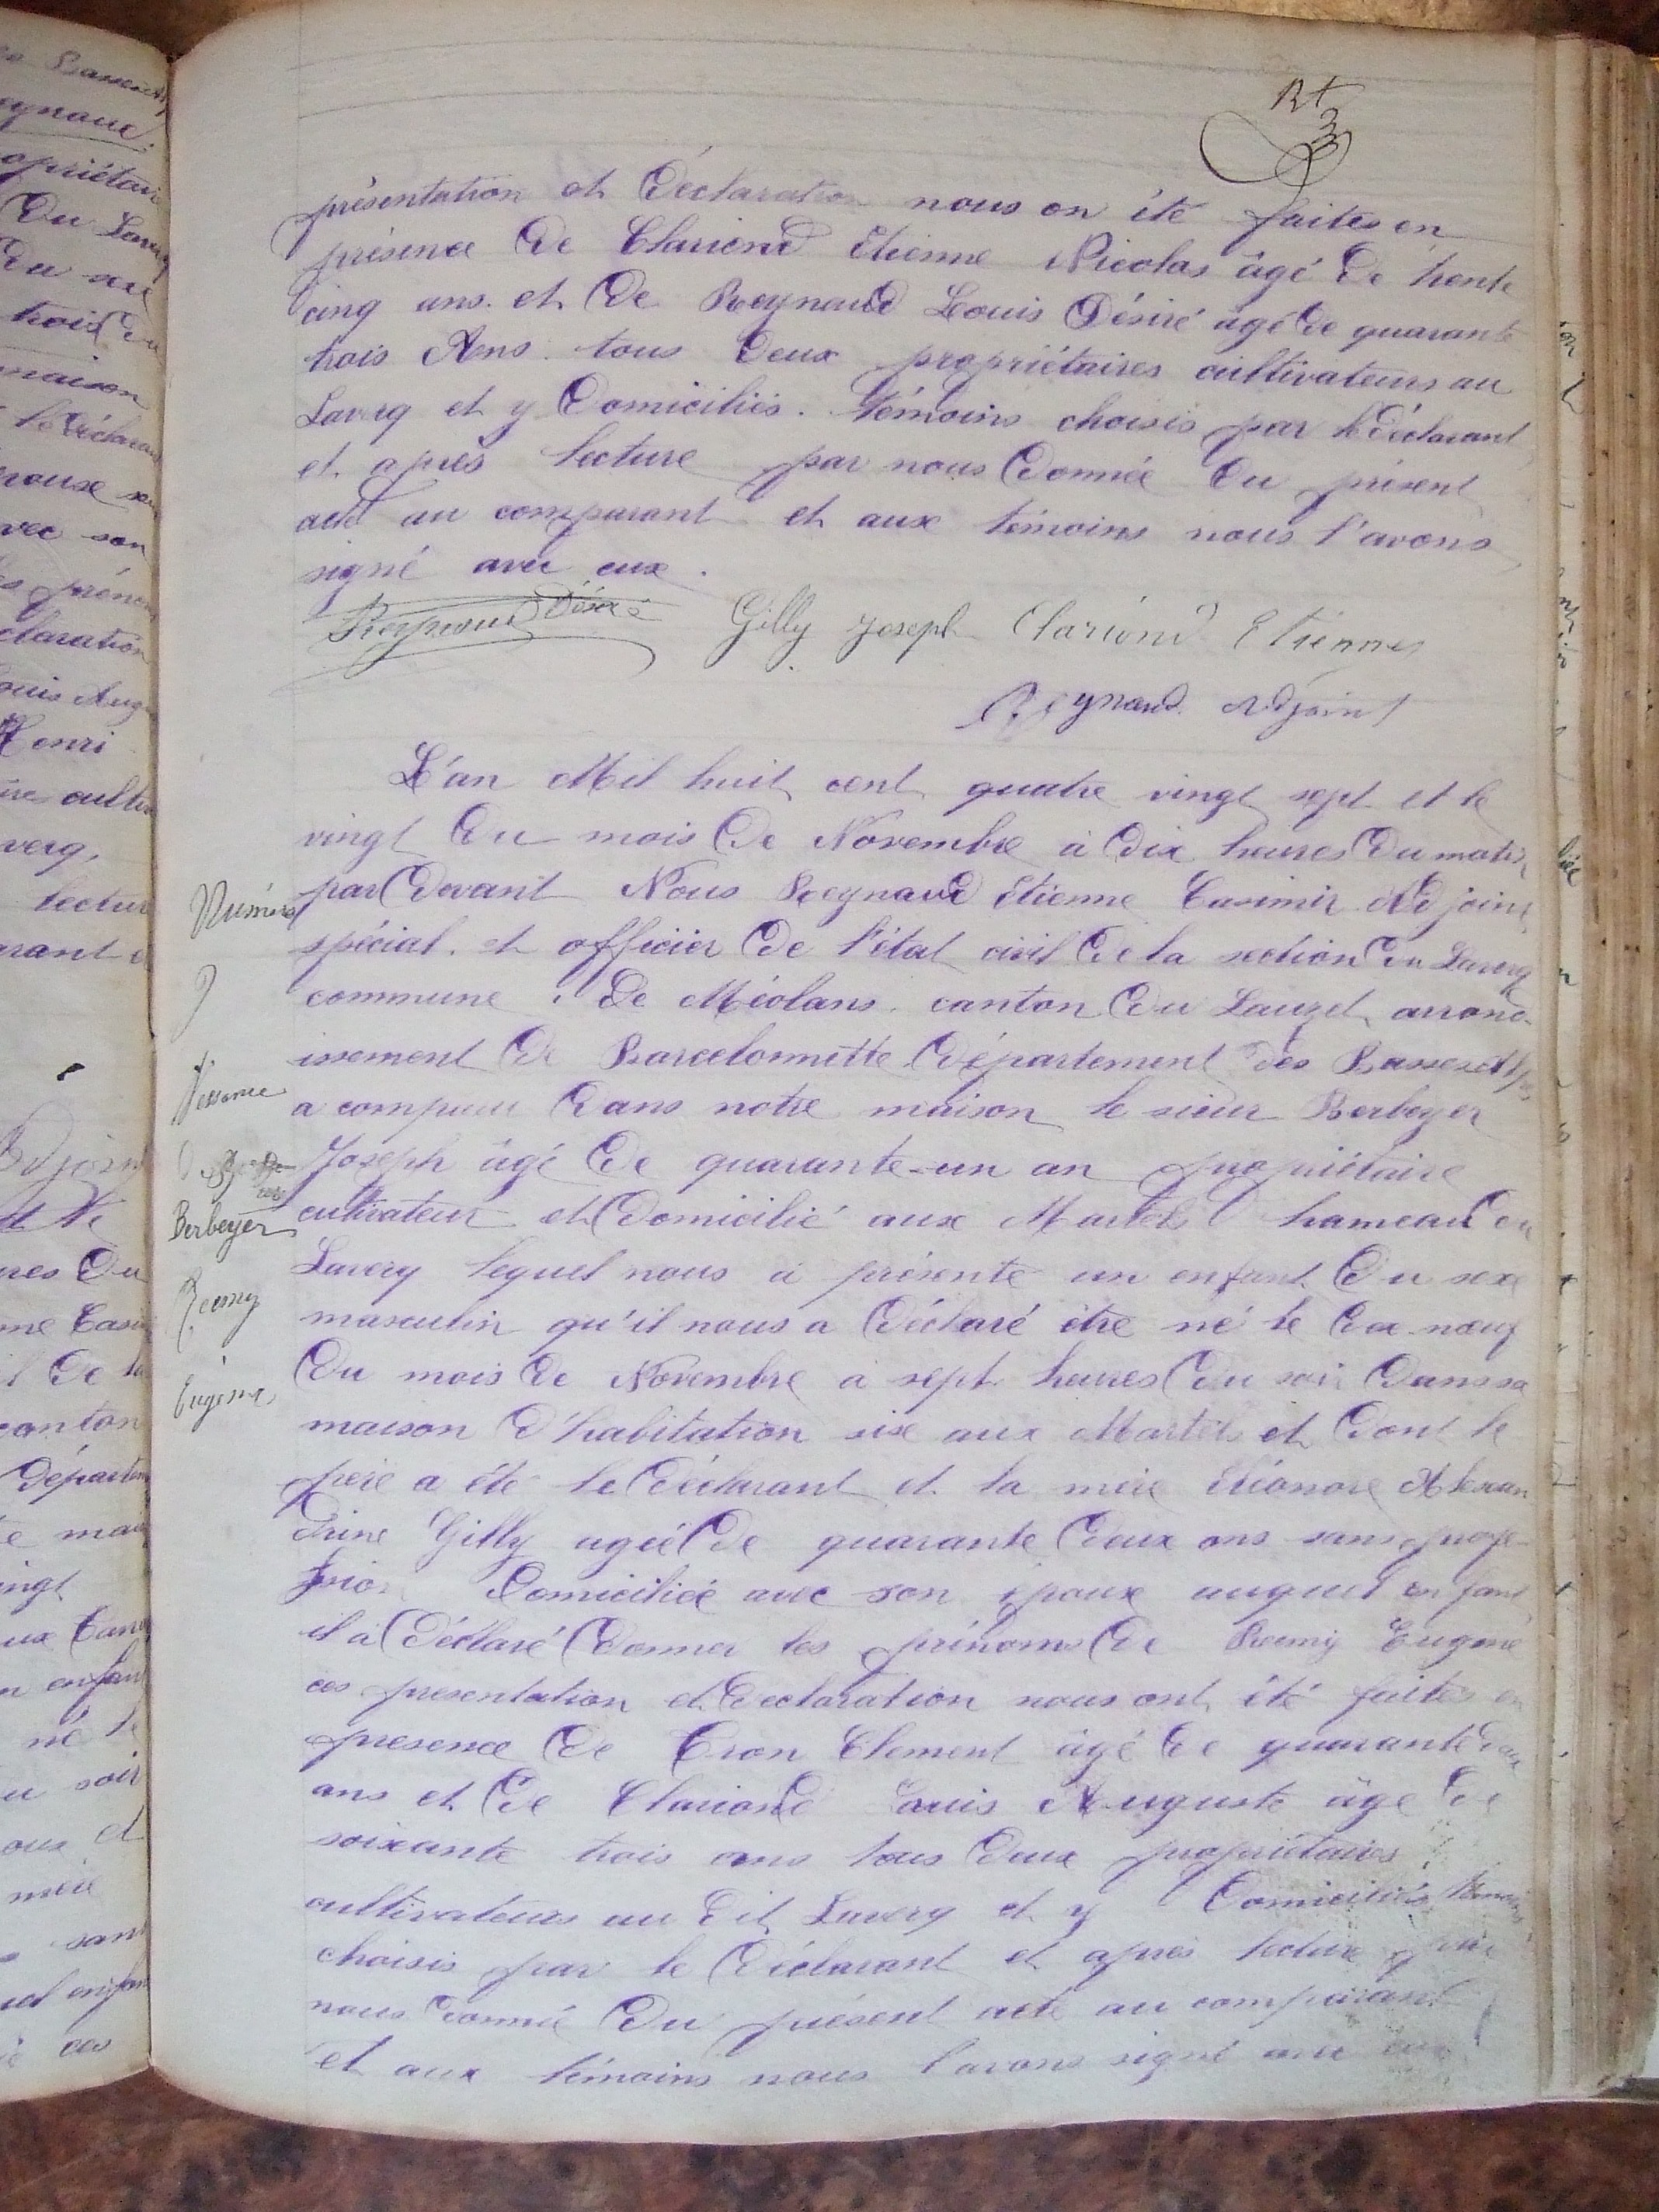 présentation et Déclaration nous on été faites en
présence De Clariond Etienne Nicolas âgé De trente
cinq ans. et De Reynaud Louis Désiré âgé De quarante
trois Ans. tous Deux propriétaires cultivateurs au
Laverq et y Domiciliés. témoins choisis par le déclarant
et après lecture par nous Donnée Du présent
acte au comparant et aux témoins nous l'avons
signé avec eux.
Reynaud Désiré Gilly Joseph Clariond Etienne
Reynaud Adjoint
L'an Mil huit cent quatre vingt sept et le
vingt Du mois De Novembre à Dix heures Du matin
par Devant Nous Reynaud Etienne Casimir Adjoint
spécial. et officier De l'état civil De la section Du Laverq
commune De Méolans. canton Du Lauzet, arrond-
issement De Barcelonnette Département Des Basses Alpes
a comparu Dans notre maison le sieur Berbeyer
Joseph âgé De quarante-un an propriétaire
cultivateur et Domicilié aux Martels hameau Du
Laverq lequel nous à présenté un enfant Du sexe
masculin qu'il nous a Déclaré être né le Dix-neuf
Du mois De Novembre à sept heures Du soir Dans sa
maison D'habitation sise aux Martels et Dont le
père a été le Déclarant et la mère Eléonore Alexan
Drine Gilly agée De quarante Deux ans sans profe-
Domiciliée avec son époux auquel enfant
il à Déclaré Donner les prénoms De Remy Eugène
ces presentation et Declaration nous ont été faites en
presence De Tron Clement âgé De quarante Deux
ans et De Clariond Louis Auguste âgé De
soixante trois ans tous Deux propriétaires
cultivateurs au Dit Laverq et y Domiciliés témoins
choisis par le Déclarant et après lecture par
nous Donnée Du présent acte au comparant
et aux témoins nous l'avons signé avec eux
Numéro
9
Naissance
De
Berbeyer
Remy
Eugène